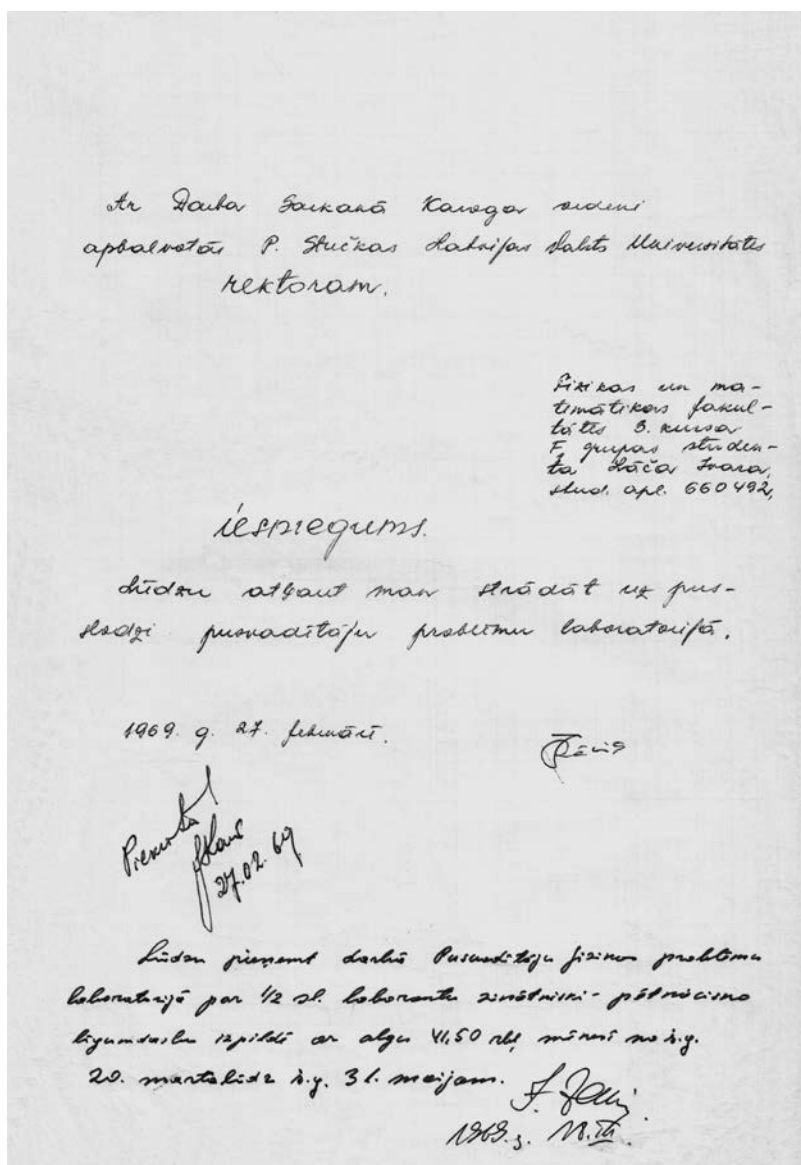 Ar Darba Sarkanā Karoga ordeni
apbalvotās P. Stučkas Latvijas Valsts Universitātes
rektoram.
Fizikas un ma-
temātikas fakul-
tātes 3. kursa
F grupas studen-
ta Lāča Ivara,
stud. apl. 660492,
iesniegums.
Lūdzu atļaut man strādāt uz pus-
slodzi pusvadītāju problēmu laboratorijā.
1969. g. 27. februārī.
Piekrītu
27.02.69
Lūdzu pieņemt darbā Pusvadītāju fizikas problēmu
laboratorijā par 1/2 sl. laborantu zinātniski-pētniecisko
līgumdarbu izpildē ar algu 41,50 rbļ mēnesī no š.g.
20. marta līdz š.g. 31. maijam.
1969. g. 18.III.